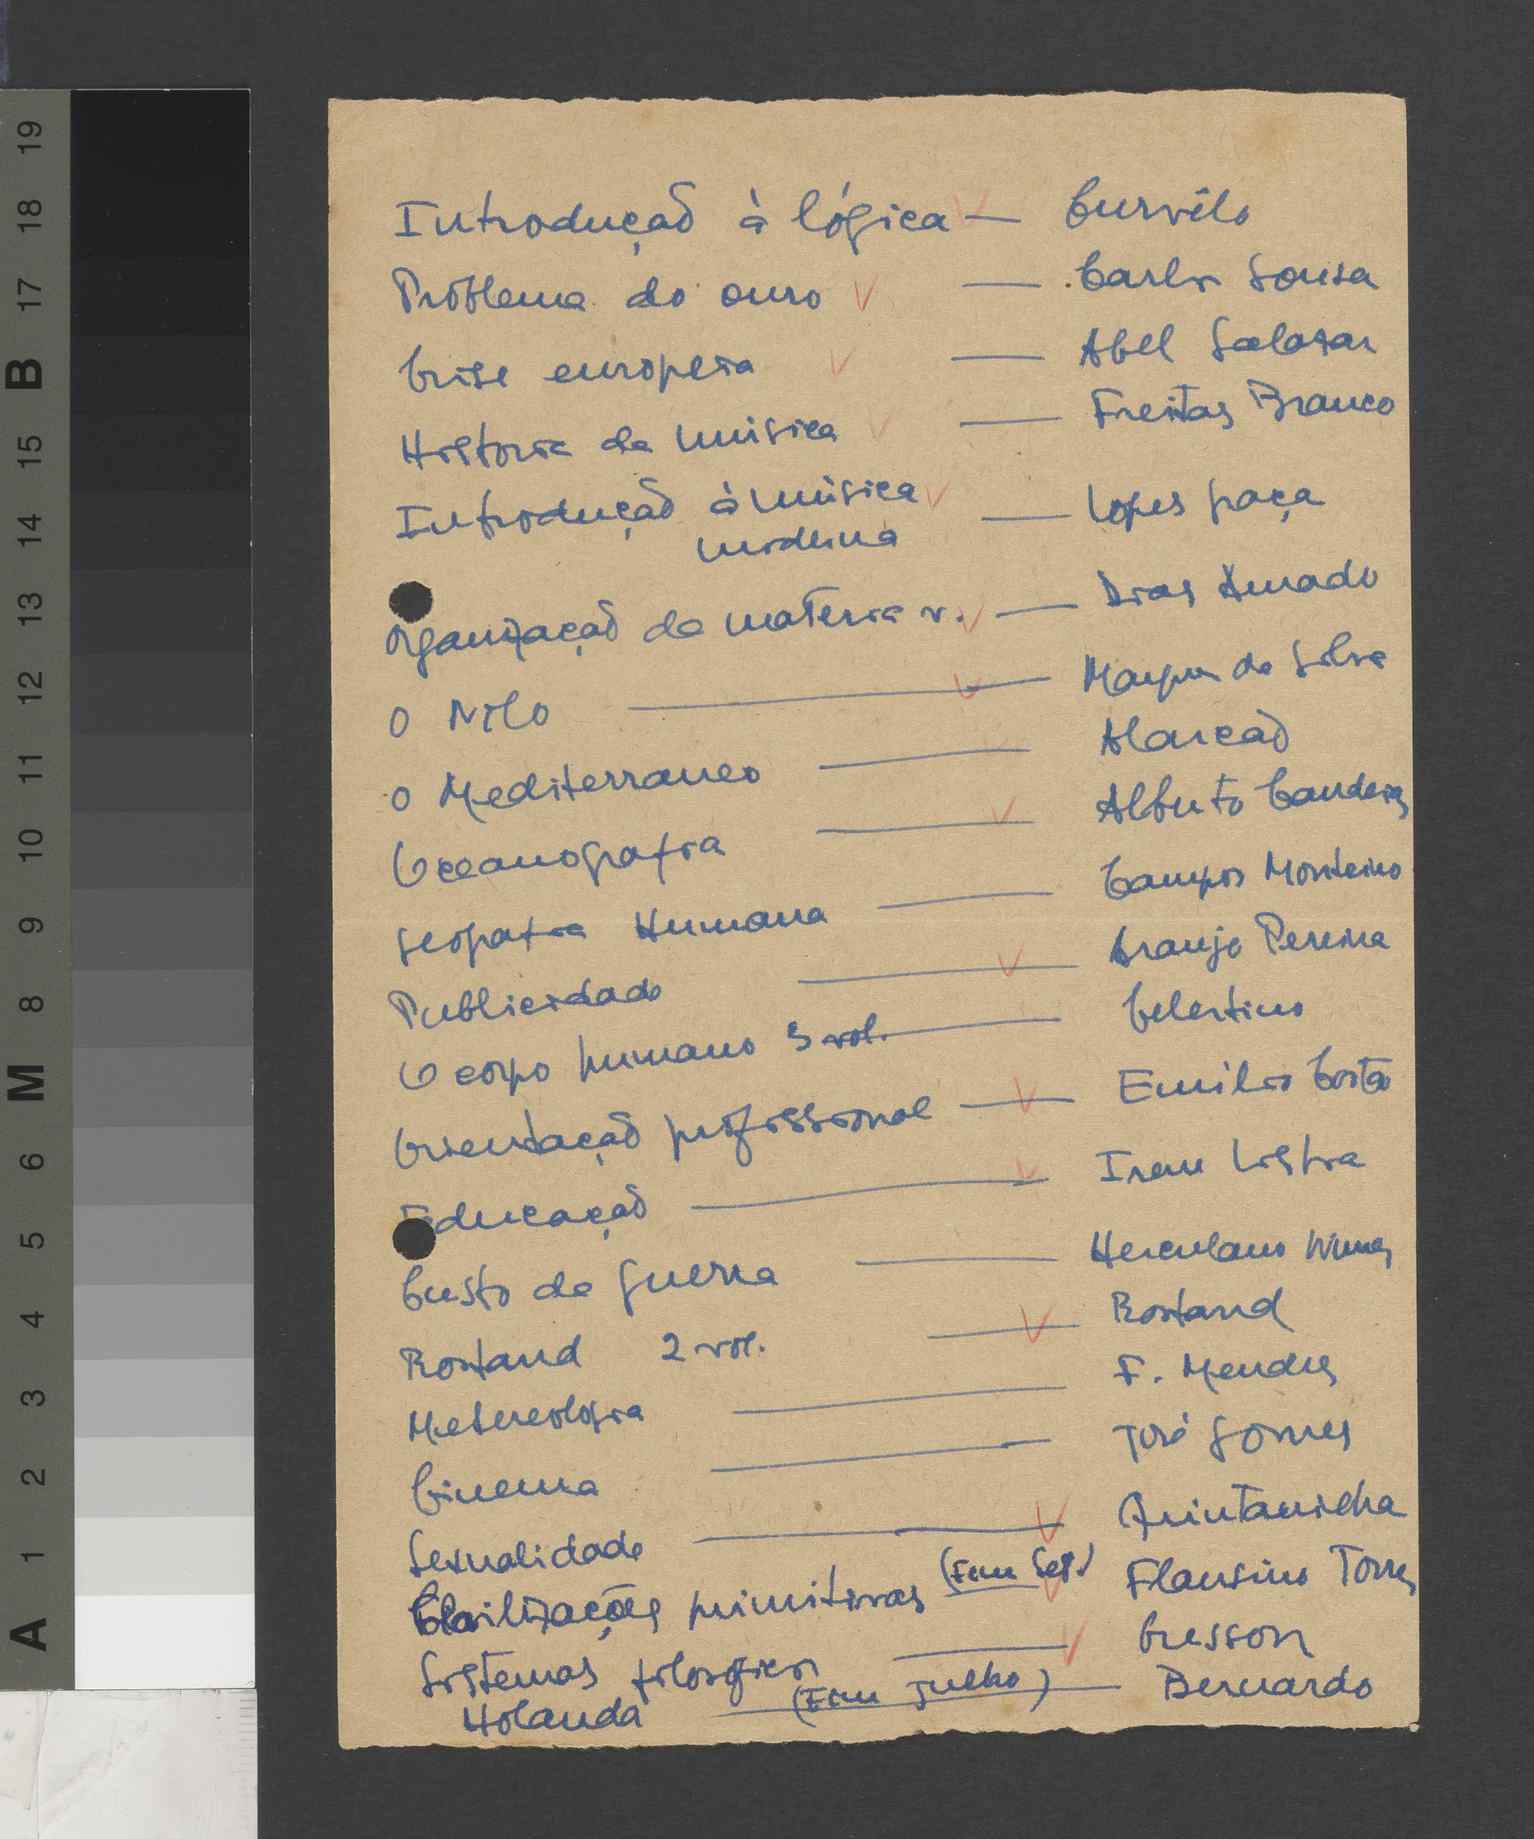 Introdução à lógica — Curvêlo
Problema do ouro — Carlos Sousa
Crise europeia — Abel Salazar
Historia da música — Freitas Branco
Introdução à música — Lopes Graça
moderna
Organização da materia v. — Dias Amado
O Nilo — Marques da Silva
O Mediterraneo — Alarcão
Oceanografia — Alberto Candeias
Geografia Humana — Campos Monteiro
Publicidade — Araujo Pereira
O corpo humano 3 vol. — Celestino
Orientação profissional — Emilio Costa
Educação — Irene Lisboa
Custo da guerra — Herculano Nunes
Rostand 2 vol. — Rostand
Metereologia — F. Mendes
Cinema — José Gomes
Sexualidade — Quintanilha
Civilizações primitivas (Fim Set.) — Flausino Torres
Sistemas filosoficos — Cresson
Holanda — (Fim Julho) — Bernardo
19
18
17
B
15
14
13
12
11
10
9
8
M
6
5
4
3
2
1
A